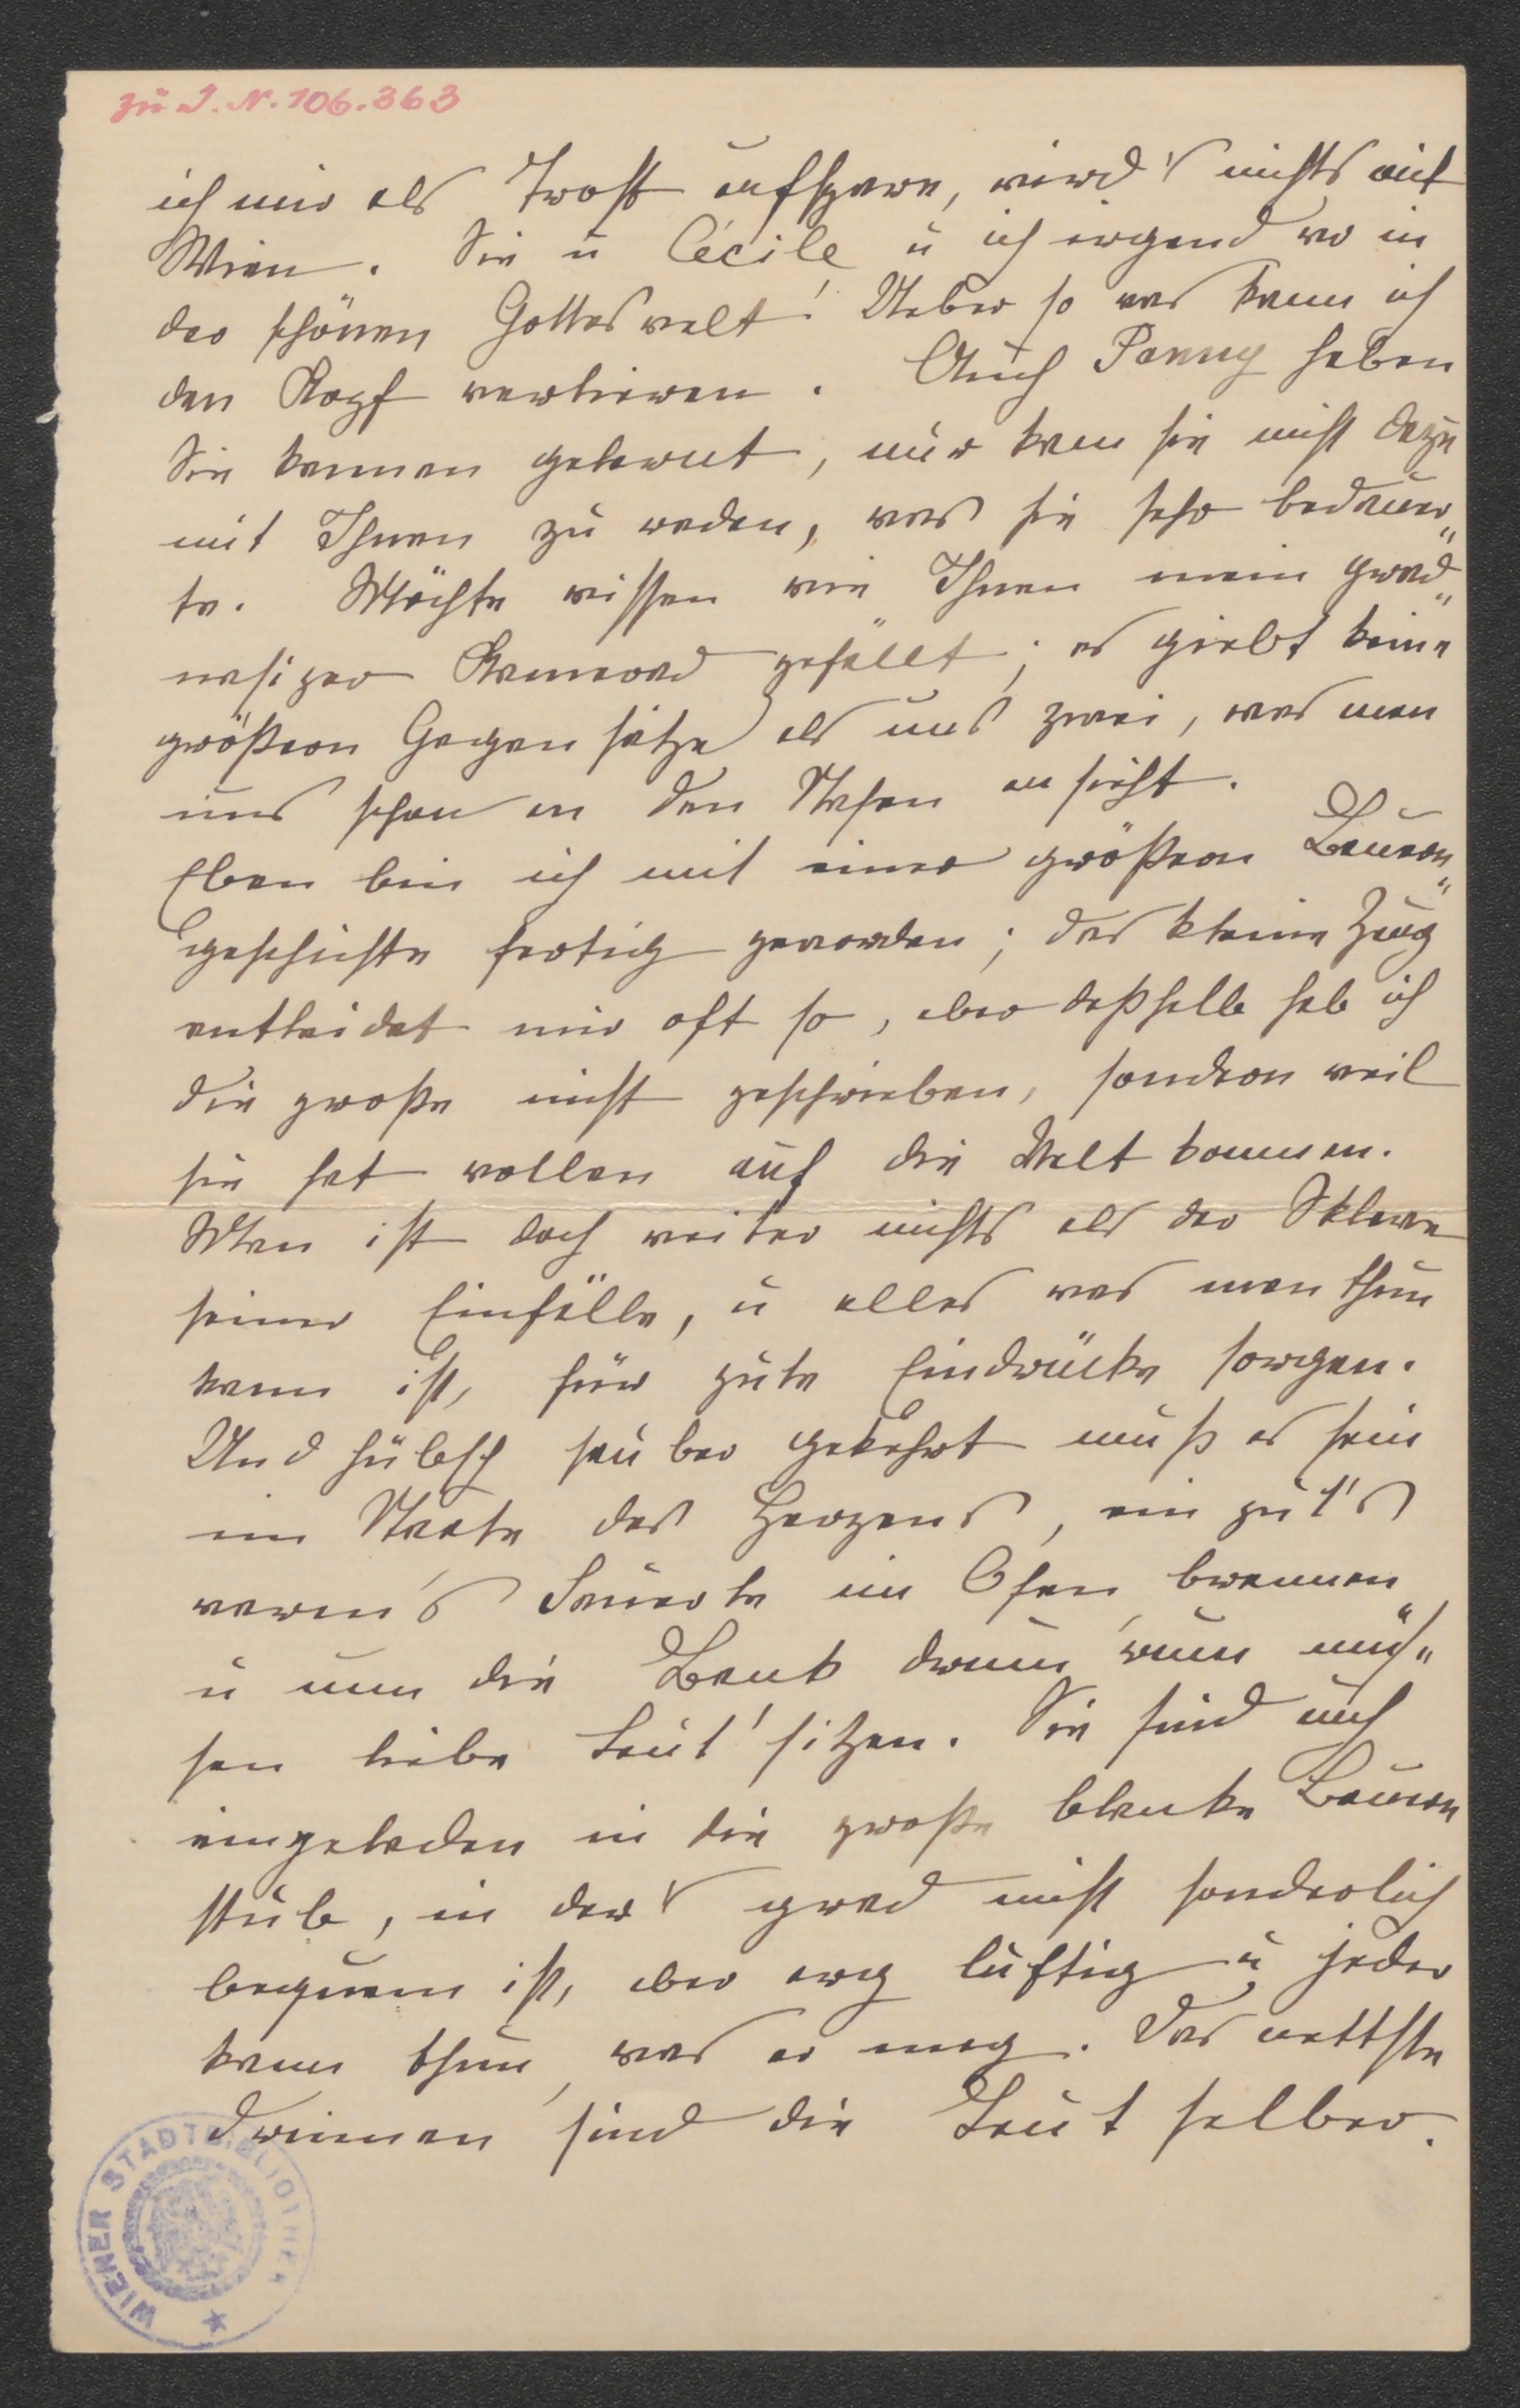 zu I. N. 106.363
ich mir als Trost aufspare, wird's nichts mit
Wien. Sie u Cécile u ich irgend wo in
der schönen Gotteswelt! Ueber so was kann ich
den Kopf verlieren. Auch Penny haben
Sie kennen gelernt, nur kam sie nicht dazu
mit Ihnen zu reden, was sie sehr bedauer„
te. Möchte wissen wie Ihnen mein grad„
nasiger Kamerad gefällt; es giebt keine
größern Gegensätze als uns zwei, was man
uns schon an den Nasen ansieht.
Eben bin ich mit einer größern Bauern„
geschichte fertig geworden; das kleine Zeug
entleidet mir oft so, aber deßhalb hab ich
die große nicht geschrieben, sondern weil
sie hat wollen auf die Welt kommen.
Man ist doch weiter nichts als der Sklave
seiner Einfälle, u alles was man thun
kann ist, für gute Eindrücke sorgen.
Und hübsch sauber gekehrt muß es sein
im Neste des Herzens, ein gut's
warm's Feuerle im Ofen brennen
u um die Bank drum 'rum müs„
sen liebe Leut' sitzen. Sie sind auch
eingeladen in die große blanke Bauern
stub, in der's grad nicht sonderlich
bequem ist, aber arg luftig u jeder
kann thun, was er mag. Das nettste
drinnen sind die Leut selber.
WIENER STADTBIBLIOTHEK